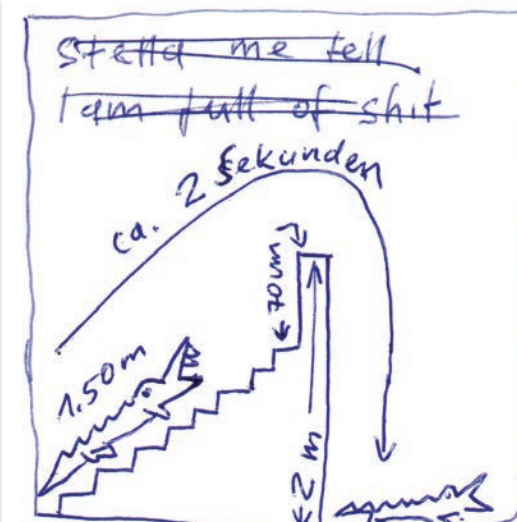 Stella me tell
I am full of shit
ca. 2 Sekunden
70 cm
1.50 m
2 m